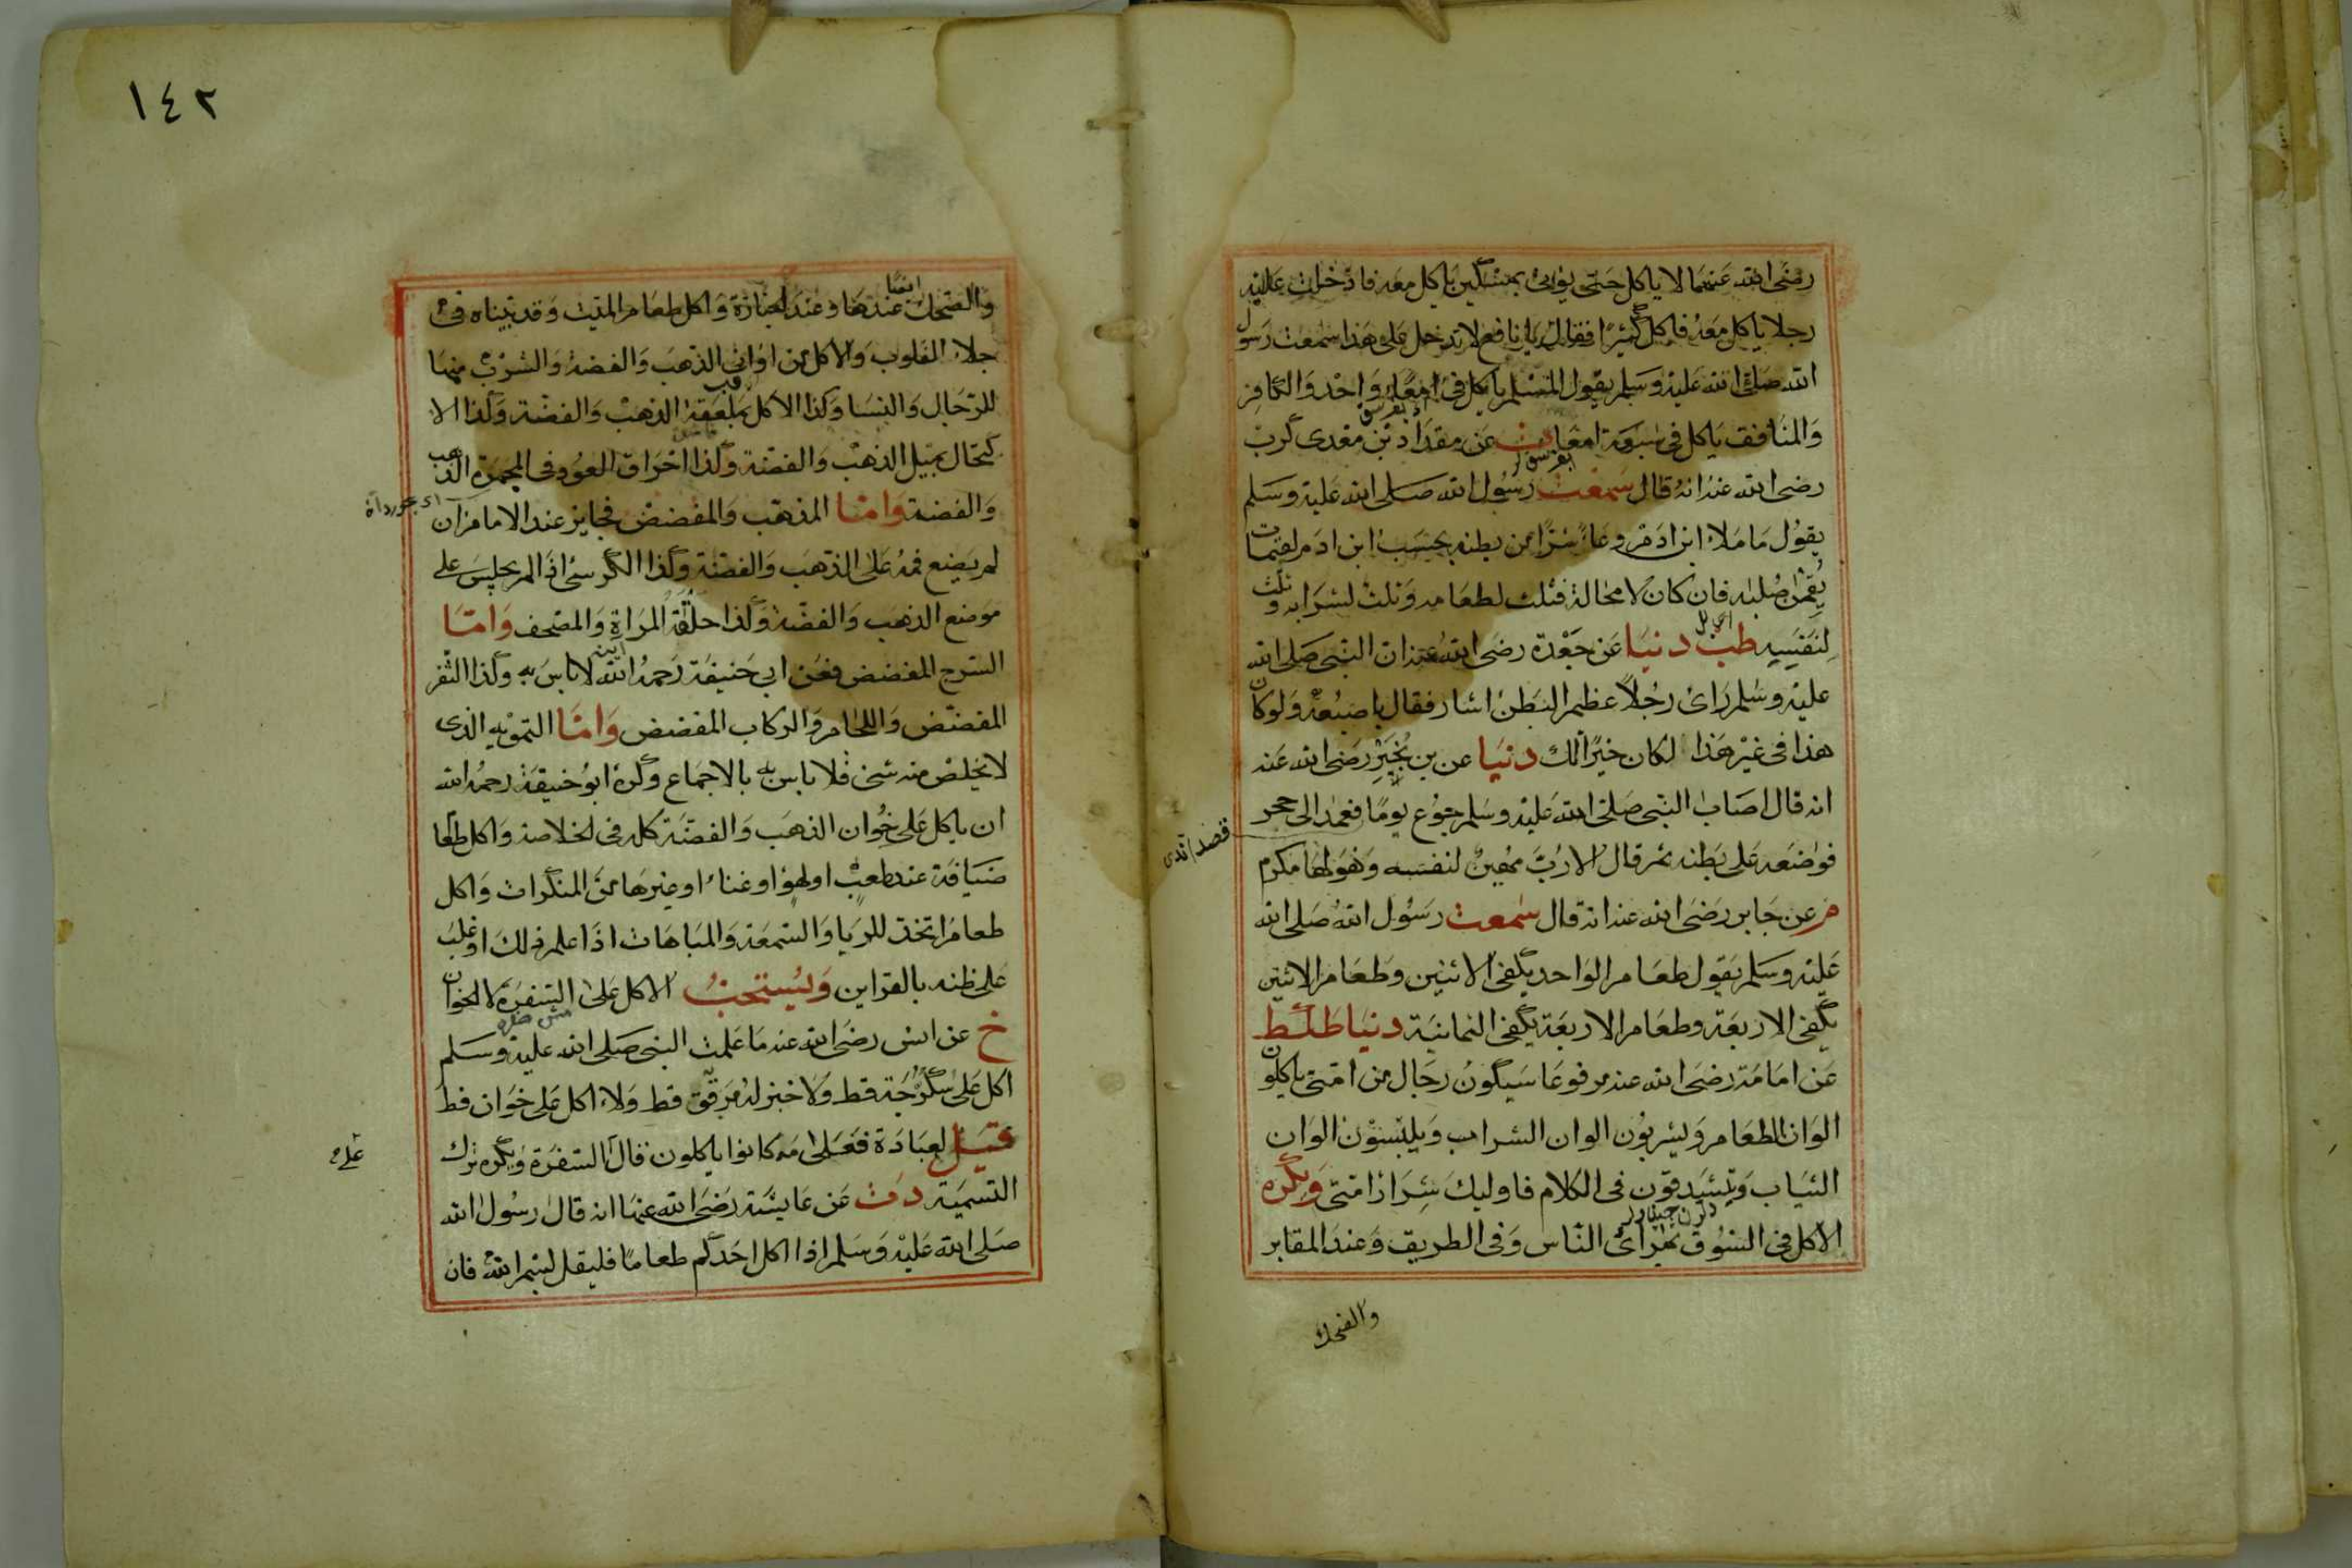 رضى الله عنهما لا ياكل حتى يؤتى بمسكين ياكل معه فادخلت عليه
رجلا ياكل معه فاكل كثيرا فقال يا نافع لا تدخل على هذا سمعت رسول
الله صلى الله عليه وسلم يقول المسلم ياكل فى امعاء واحد والكافر
والمنافق ياكل فى سبعة امعا ت عن مقداد بن معدى كرب
رضى الله عنه انه قال سمعت رسول الله صلى الله عليه وسلم
يقول ما ملاء ابن ادم وعاء شرا من بطنه بحسب ابن ادم لقيمات
يقمن صلبه فان كان لا محالة فثلث لطعامه وثلث لشرابه وثلث
لنفسه طب دنيا عن جعدة رضى الله عنه ان النبى صلى الله
عليه وسلم راى رجلا عظيم البطن اشار فقال باصبعه ولو كان
هذا فى غير هذا لكان خيرا لك دنيا عن بن بجير رضى الله عنه
انه قال اصاب النبى صلى الله عليه وسلم جوع يوما فعمد الى حجر
قصد اتدى
فوضعه على بطنه ثم قال الا رب مهين لنفسه وهو لها مكرم
م عن جابر رضى الله عنه انه قال سمعت رسول الله صلى الله
عليه وسلم يقول طعام الواحد يكفى الاثنين وطعام الاثنين
يكفى الاربعة وطعام الاربعة يكفى الثمانية دنيا طط
عن امامة رضى الله عنه مرفوعا سيكون رجال من امتى ياكلون
الوان الطعام ويشربون الوان الشراب ويلبسون الوان
الثياب ويتشدقون فى الكلام فاوليك شرار امتى ويكره
الاكل فى السوق بمراى الناس وفى الطريق وعند المقابر
والضحك
١٤٢
والضحك عندها وعند الجنازة واكل طعام الميت وقد بيناه فى
ايضا
جلاء القلوب والاكل من اوانى الذهب والفضة والشرب منها
للرجال والنسا وكذا الاكل بملعقة الذهب والفضة وكذا الا
كتحال بميل الذهب والفضة وكذا احراق العود فى المجمرة الذهب
والفضة واما المذهب والمفضض فجايز عند الامام ان
لم يضع فمه على الذهب والفضة وكذا الكرسى اذا لم يجلس على
موضع الذهب والفضة وكذا حلقة المراة والمصحف واما
السرج المفضض فعن ابى حنيفة رحمه الله لا باس به وكذا الثفر
المفضض واللجام والركاب المفضض واما التمويه الذى
لا يخلص منه شئ فلا باس به بالاجماع وكره ابو حنيفة رحمه الله
ان ياكل على خوان الذهب والفضة كله فى الخلاصة واكل طعا
ضيافة عندها لعب او لهو او غناء او غيرها من المنكرات واكل
طعام اتخذ للريا والسمعة والمباهات اذا علم ذلك او غلب
على ظنه بالقراين ويستحب الاكل على السفرة لا الخوان
خ عن انس رضى الله عنه ما علمت النبى صلى الله عليه وسلم
اكل على سكرجة قط ولا خبز له مرقق قط ولا اكل على خوان قط
قيل لعبادة فعلى مه كانوا ياكلون قال السفرة ويكره ترك
على
التسمية د ت عن عايشة رضى الله عنها انه قال رسول الله
صلى الله عليه وسلم اذا اكل احدكم طعاما فليقل بسم الله فان